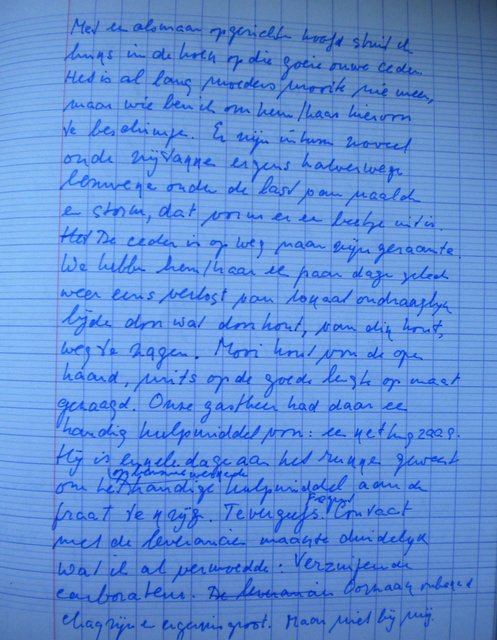 Met en alsmaar opgericht hoofd stuit ik
links in de hoek op die goeie ouwe ceder.
Het is al lang moeders mooiste nie meer,
maar wie ben ik om hem/haar hiervoor
te beschimpen. Er zijn intussen zoveel
oude zijtakken ergens halverwege
onder de last van naalden
en storm, dat vorm er een beetje uit is.
De ceder is op weg naar zijn geraamte.
We hebben hem/haar een paar dagen geleden
weer eens verlost van loyaal ondraaglijk
lijden door wat doorhout, van dik hout,
weg te zagen. Mooi hout voor de open
haard, mits op de goede lengte op maat
gezaagd. Onze gastheer had daar een
handig hulpmiddel voor: een kettingzaag.
Hij is enkele dagen aan het rennen geweest
om het handige hulpmiddel aan de
praat te krijgen. Tevergeefs. Contact
met de leverancier maakte duidelijk
wat ik al vermoedde: Verzuipende
carburateur. Oorzaak onbekend
chagrijn en ergernis groot. Maar niet bij mij.